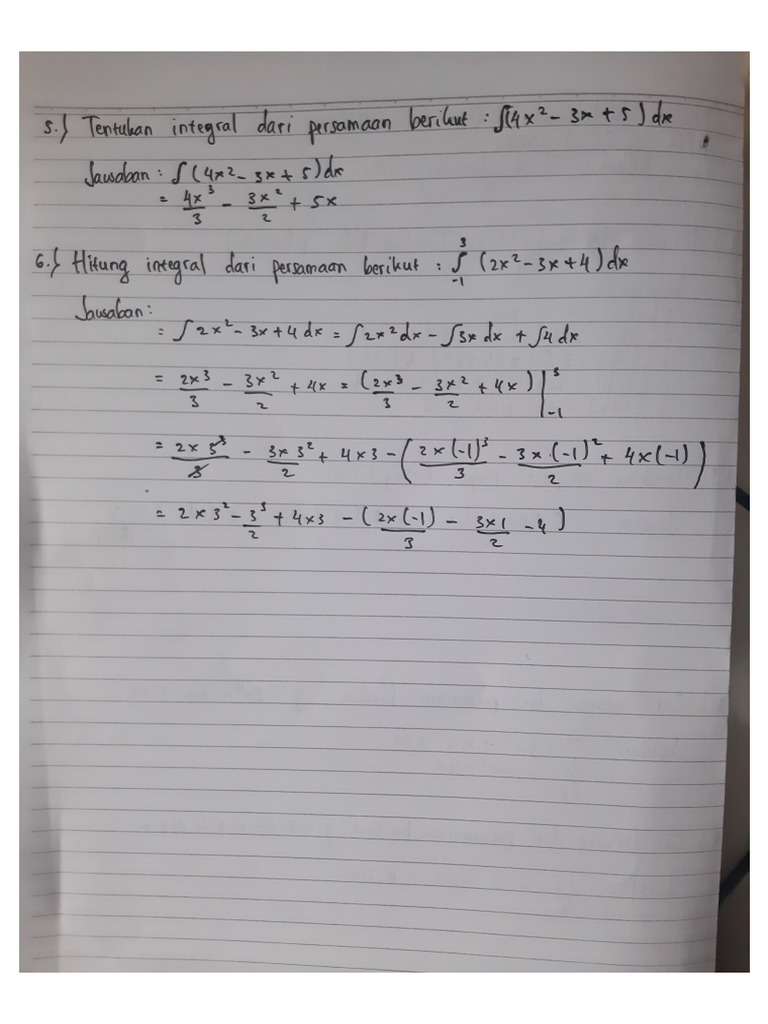 5.) Tentukan integral dari persamaan berikut : ∫(4x² - 3x + 5) dx
Jawaban : ∫ (4x² - 3x + 5) dx
= 4x³/3 - 3x²/2 + 5x
6.) Hitung integral dari persamaan berikut : ∫₋₁³ (2x² - 3x + 4) dx
Jawaban :
= ∫ 2x² - 3x + 4 dx = ∫ 2x² dx - ∫ 3x dx + ∫ 4 dx
= 2x³/3 - 3x²/2 + 4x = (2x³/3 - 3x²/2 + 4x) |₋₁³
= 2 × 3³/3 - 3 × 3²/2 + 4 × 3 - (2 × (-1)³/3 - 3 × (-1)²/2 + 4 × (-1))
= 2 × 3² - 3³/2 + 4 × 3 - (2 × (-1)/3 - 3 × 1/2 - 4)